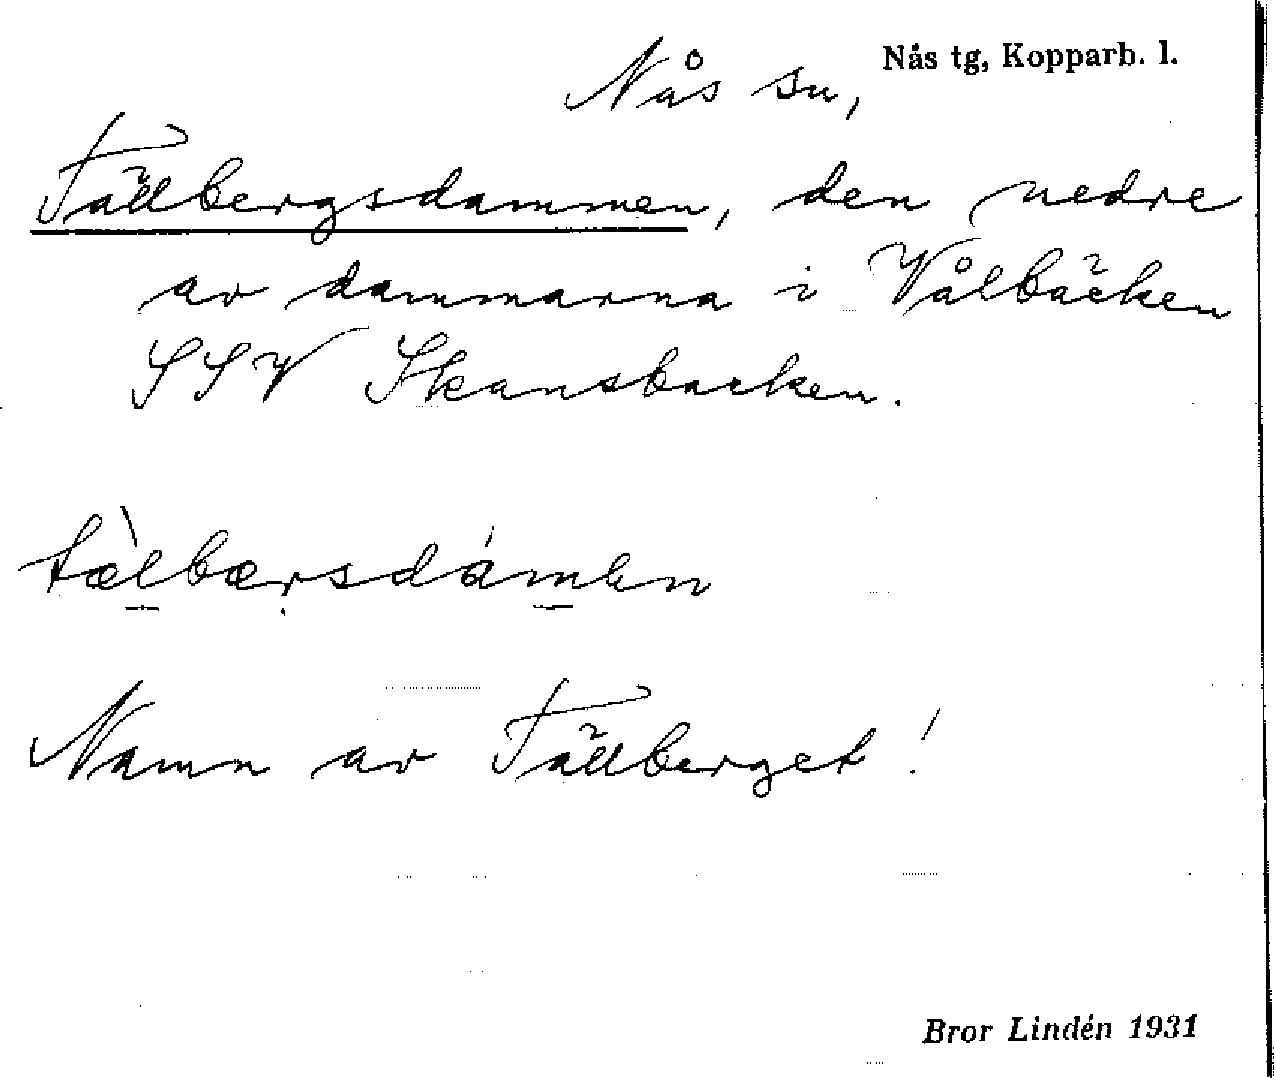 Nås sn, Nås tg, Kopparb. l.
Tällbergsdammen, den nedre
av dammarna i Vålbäcken
SSV Skansbacken.
tæ̀lbærsdámen
Namn av Tällberget!
Bror Lindén 1931